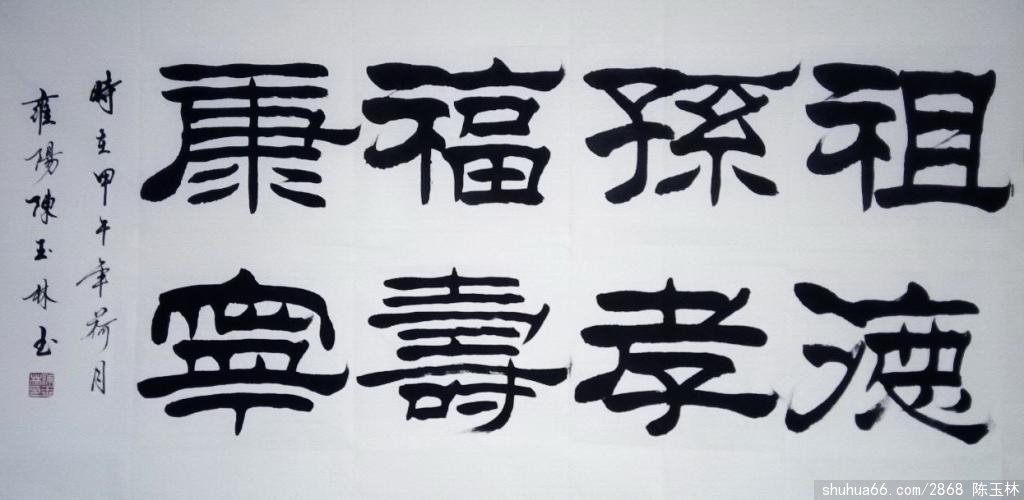 祖德
孫孝
福壽
康寧
時在甲午年荷月
雍陽陳玉林书
shuhua66.com/2868 陈玉林